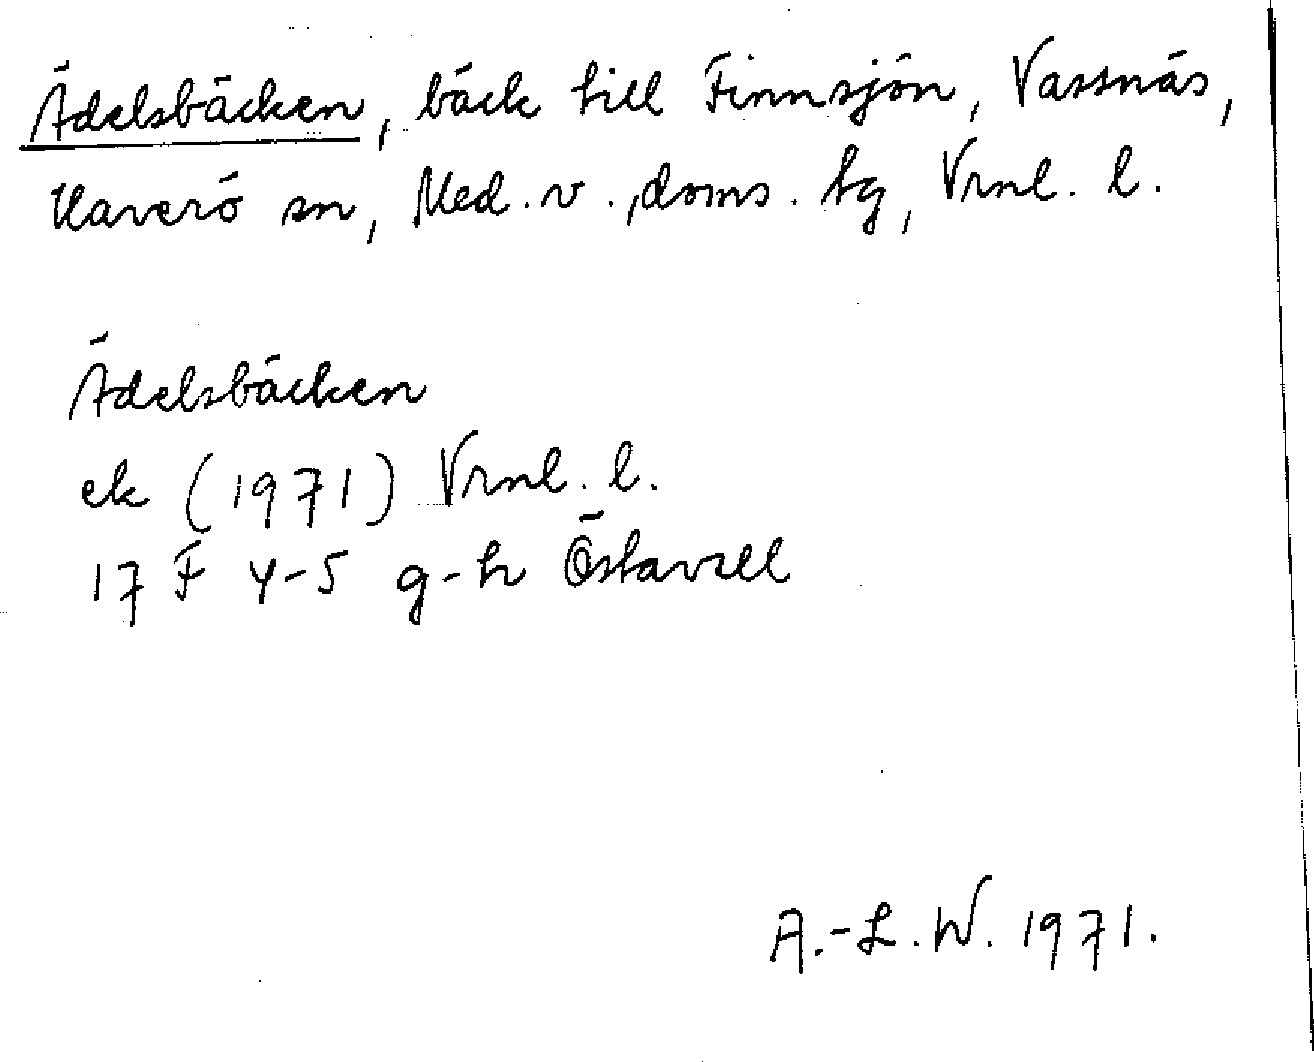 Ädelsbäcken, bäck till Finnsjön, Vassnäs,
Haverö sn, Med. v., doms. tg, Vrnl. l.
Ädelsbäcken
ek (1971) Vrnl. l.
17 F 4-5 g-h Östavall
A.-L. W. 1971.